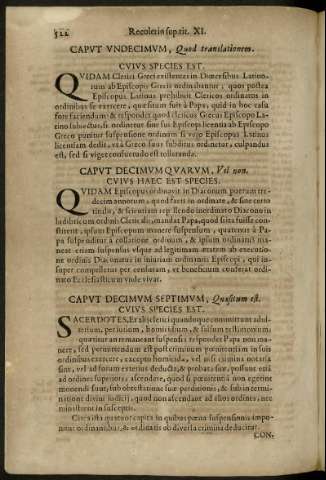 522 Recolet in sup. tit. XI.
CAPUT VNDECIMVM, Quod translationem.
CVIVS SPECIES EST.
QVIDAM Clerici Greci existentes in Diocesibus Latino-
rum ab Episcopo Grecis ordinabantur, quos postea
Episcopus Latinus prohibuit Clericos ordinatos in
ordinibus se exercere, quæsitum fuit à Papa, quid in hoc casu
fore faciendum & respondet quod si clericus Græcus Episcopo La-
tino subiectus, si ordinetur sine sui Episcopi licentia ab Episcopo
Græco punitur suspensione ordinum si vero Episcopus Latinus
licentiam dedit, vt à Græco suus subditus ordinetur, culpandus
est, sed si viget consuetudo est tolleranda.
CAPUT DECIMUM QVARVM, Vel non.
CVIVS HAEC EST SPECIES.
QVIDAM Episcopus ordinavit in Diaconum puerum tre-
decim annorum, quod facti in ordinate, & sine certo
titulo, & scientiam repellendo inordinato Diacono in-
hibitis ordini Clericali, mandat Papa, quod si ita fuisse con-
stiterit, ipsum Episcopum manere suspensum, quatenus à Pa-
pa suspenditur à collatione ordinum, & ipsum ordinatum ma-
neat etiam suspensus vsque ad legitimam ætatem ab executio-
ne ordinis Diaconatus in iniuriam ordinantis Episcopi, qui in-
super compelletur per censuram, vt beneficium conferat ordi-
nato Ecclesiasticum vnde vivat.
CAPUT DECIMVM SEPTIMUM, Quæsitum est.
CVIVS SPECIES EST.
SACERDOTES, Et alij clerici quandoque committunt adul-
terium, periurium, homicidium, & falsum testimonium;
quæritur an remaneant suspensi respondet Papa non ma-
nere, sed permittendum est post criminum pœnitentiam in suis
ordinibus exercere, excepto homicida, vel nisi crimina notoria
sint, vel ad forum exterius deducta, & probata sint, possunt etiã
ad ordines superiores; ascendere, quod si pœnitentia non egerint
monendi sunt, sub obtestatione suæ perditionis, & sub in termi-
natione divini iudicij, quod non ascendant ad alios ordines, nec
ministrent in susceptis.
Circa ista quatuor capita in quibus pœna suspensionis impo-
nitur ordinantibus, & ordinatis ob diversa crimina deducitur.
CON-